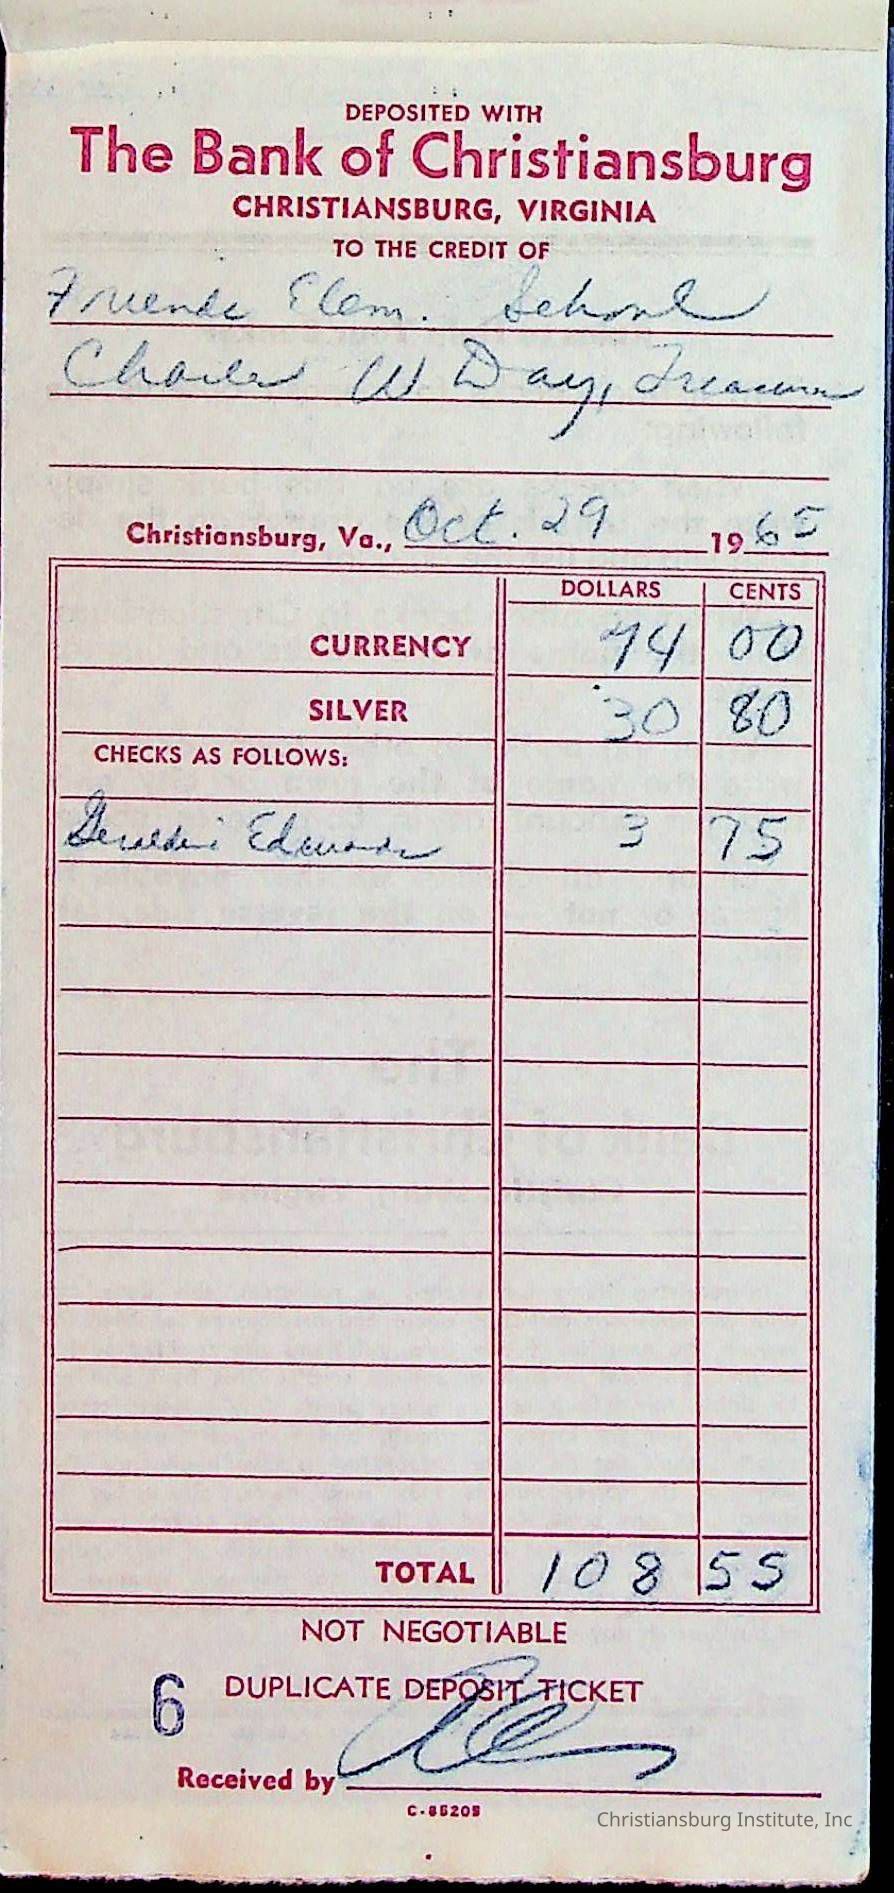 DEPOSITED WITH
The Bank of Christiansburg
CHRISTIANSBURG, VIRGINIA
TO THE CREDIT OF
Friends Elem. School
Charles W Day, Treasurer
Christiansburg, Va., Oct. 29 1965
DOLLARS CENTS
CURRENCY 74 00
SILVER 30 80
CHECKS AS FOLLOWS:
Geraldine Edwards 3 75
TOTAL 108 55
NOT NEGOTIABLE
6 DUPLICATE DEPOSIT TICKET
Received by
C-85205
Christiansburg Institute, Inc